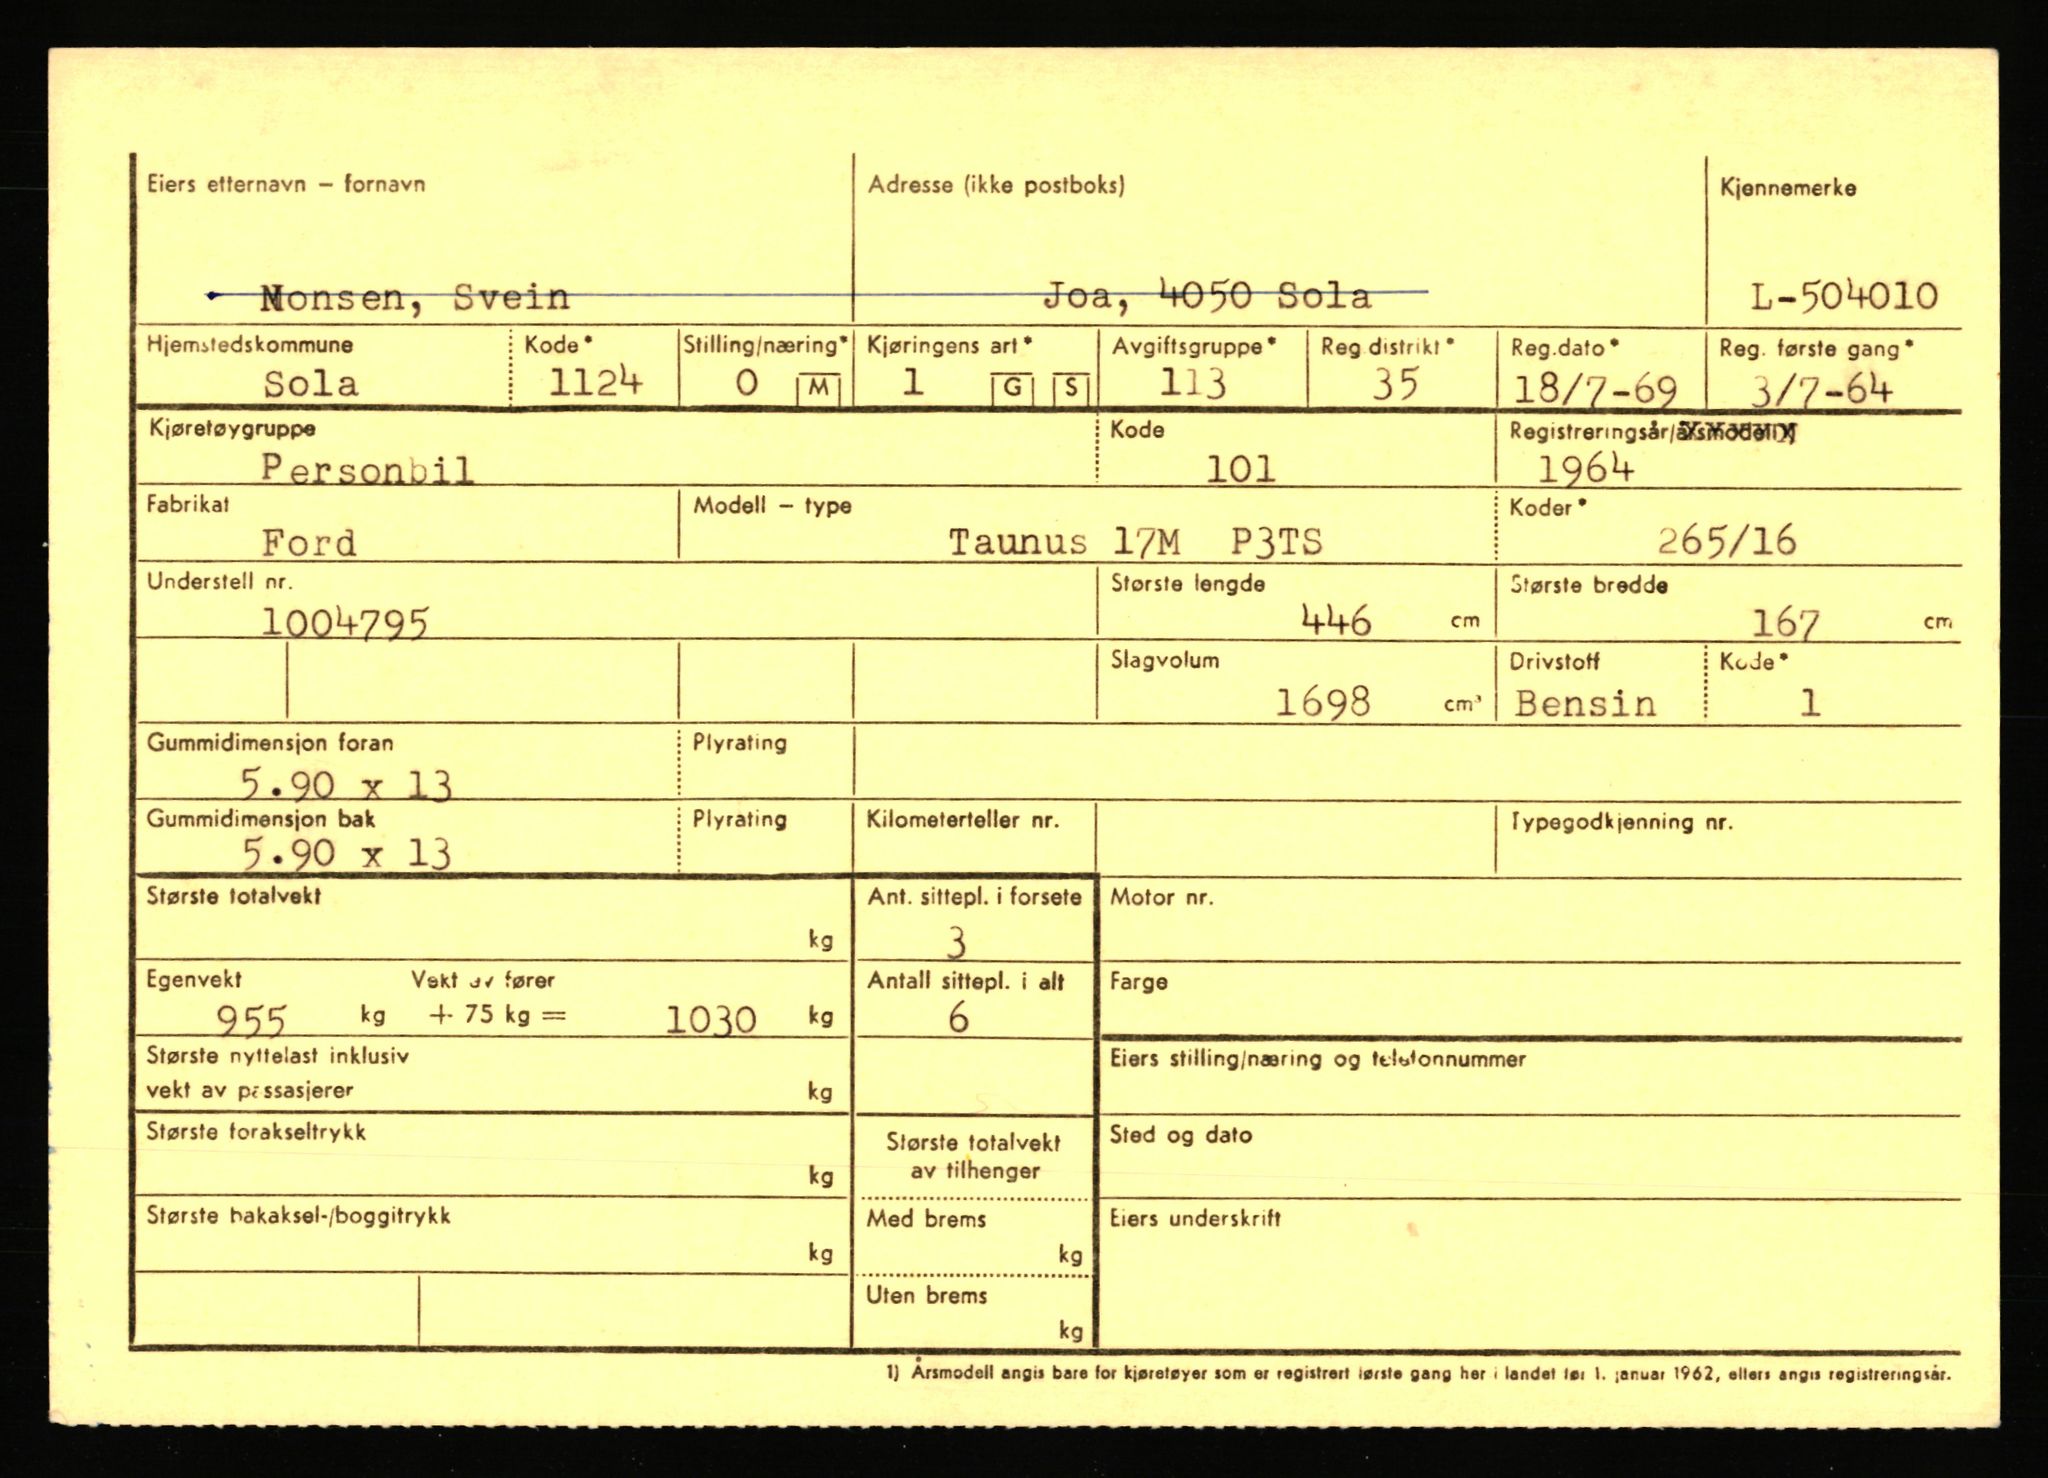 Eiers etternavn – fornavn Adresse (ikke postboks) Kjennemerke
Monsen, Svein Joa, 4050 Sola L-504010
Hjemstedskommune Kode* Stilling/næring* Kjøringens art* Avgiftsgruppe* Reg.distrikt* Reg.dato* Reg. første gang*
Sola 1124 0 M 1 G S 113 35 18/7-69 3/7-64
Kjøretøygruppe Kode Registreringsår/årsmodell 1)
Personbil 101 1964
Fabrikat Modell – type Koder*
Ford Taunus 17M P3TS 265/16
Understell nr. Største lengde Største bredde
1004795 446 cm 167 cm
Slagvolum Drivstoff Kode*
1698 cm³ Bensin 1
Gummidimensjon foran Plyrating
5.90 x 13
Gummidimensjon bak Plyrating Kilometerteller nr. Typegodkjenning nr.
5.90 x 13
Største totalvekt Ant. sittepl. i forsete Motor nr.
kg 3
Egenvekt Vekt av fører Antall sittepl. i alt Farge
955 kg + 75 kg = 1030 kg 6
Største nyttelast inklusiv Eiers stilling/næring og telefonnummer
vekt av passasjerer kg
Største forakseltrykk Største totalvekt Sted og dato
kg av tilhenger
Største bakaksel-/boggitrykk Med brems Eiers underskrift
kg kg
Uten brems
kg
1) Årsmodell angis bare for kjøretøyer som er registrert første gang her i landet før 1. januar 1962, ellers angis registreringsår.